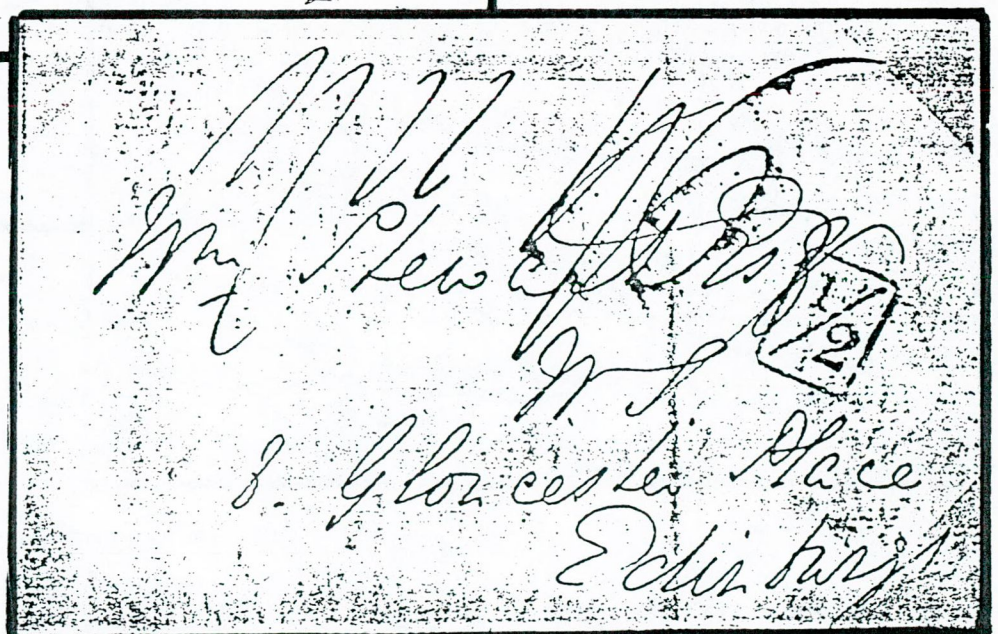 Wm Stewart Esqr
W. S.
3. Gloucester Place
Edinburgh
1/2